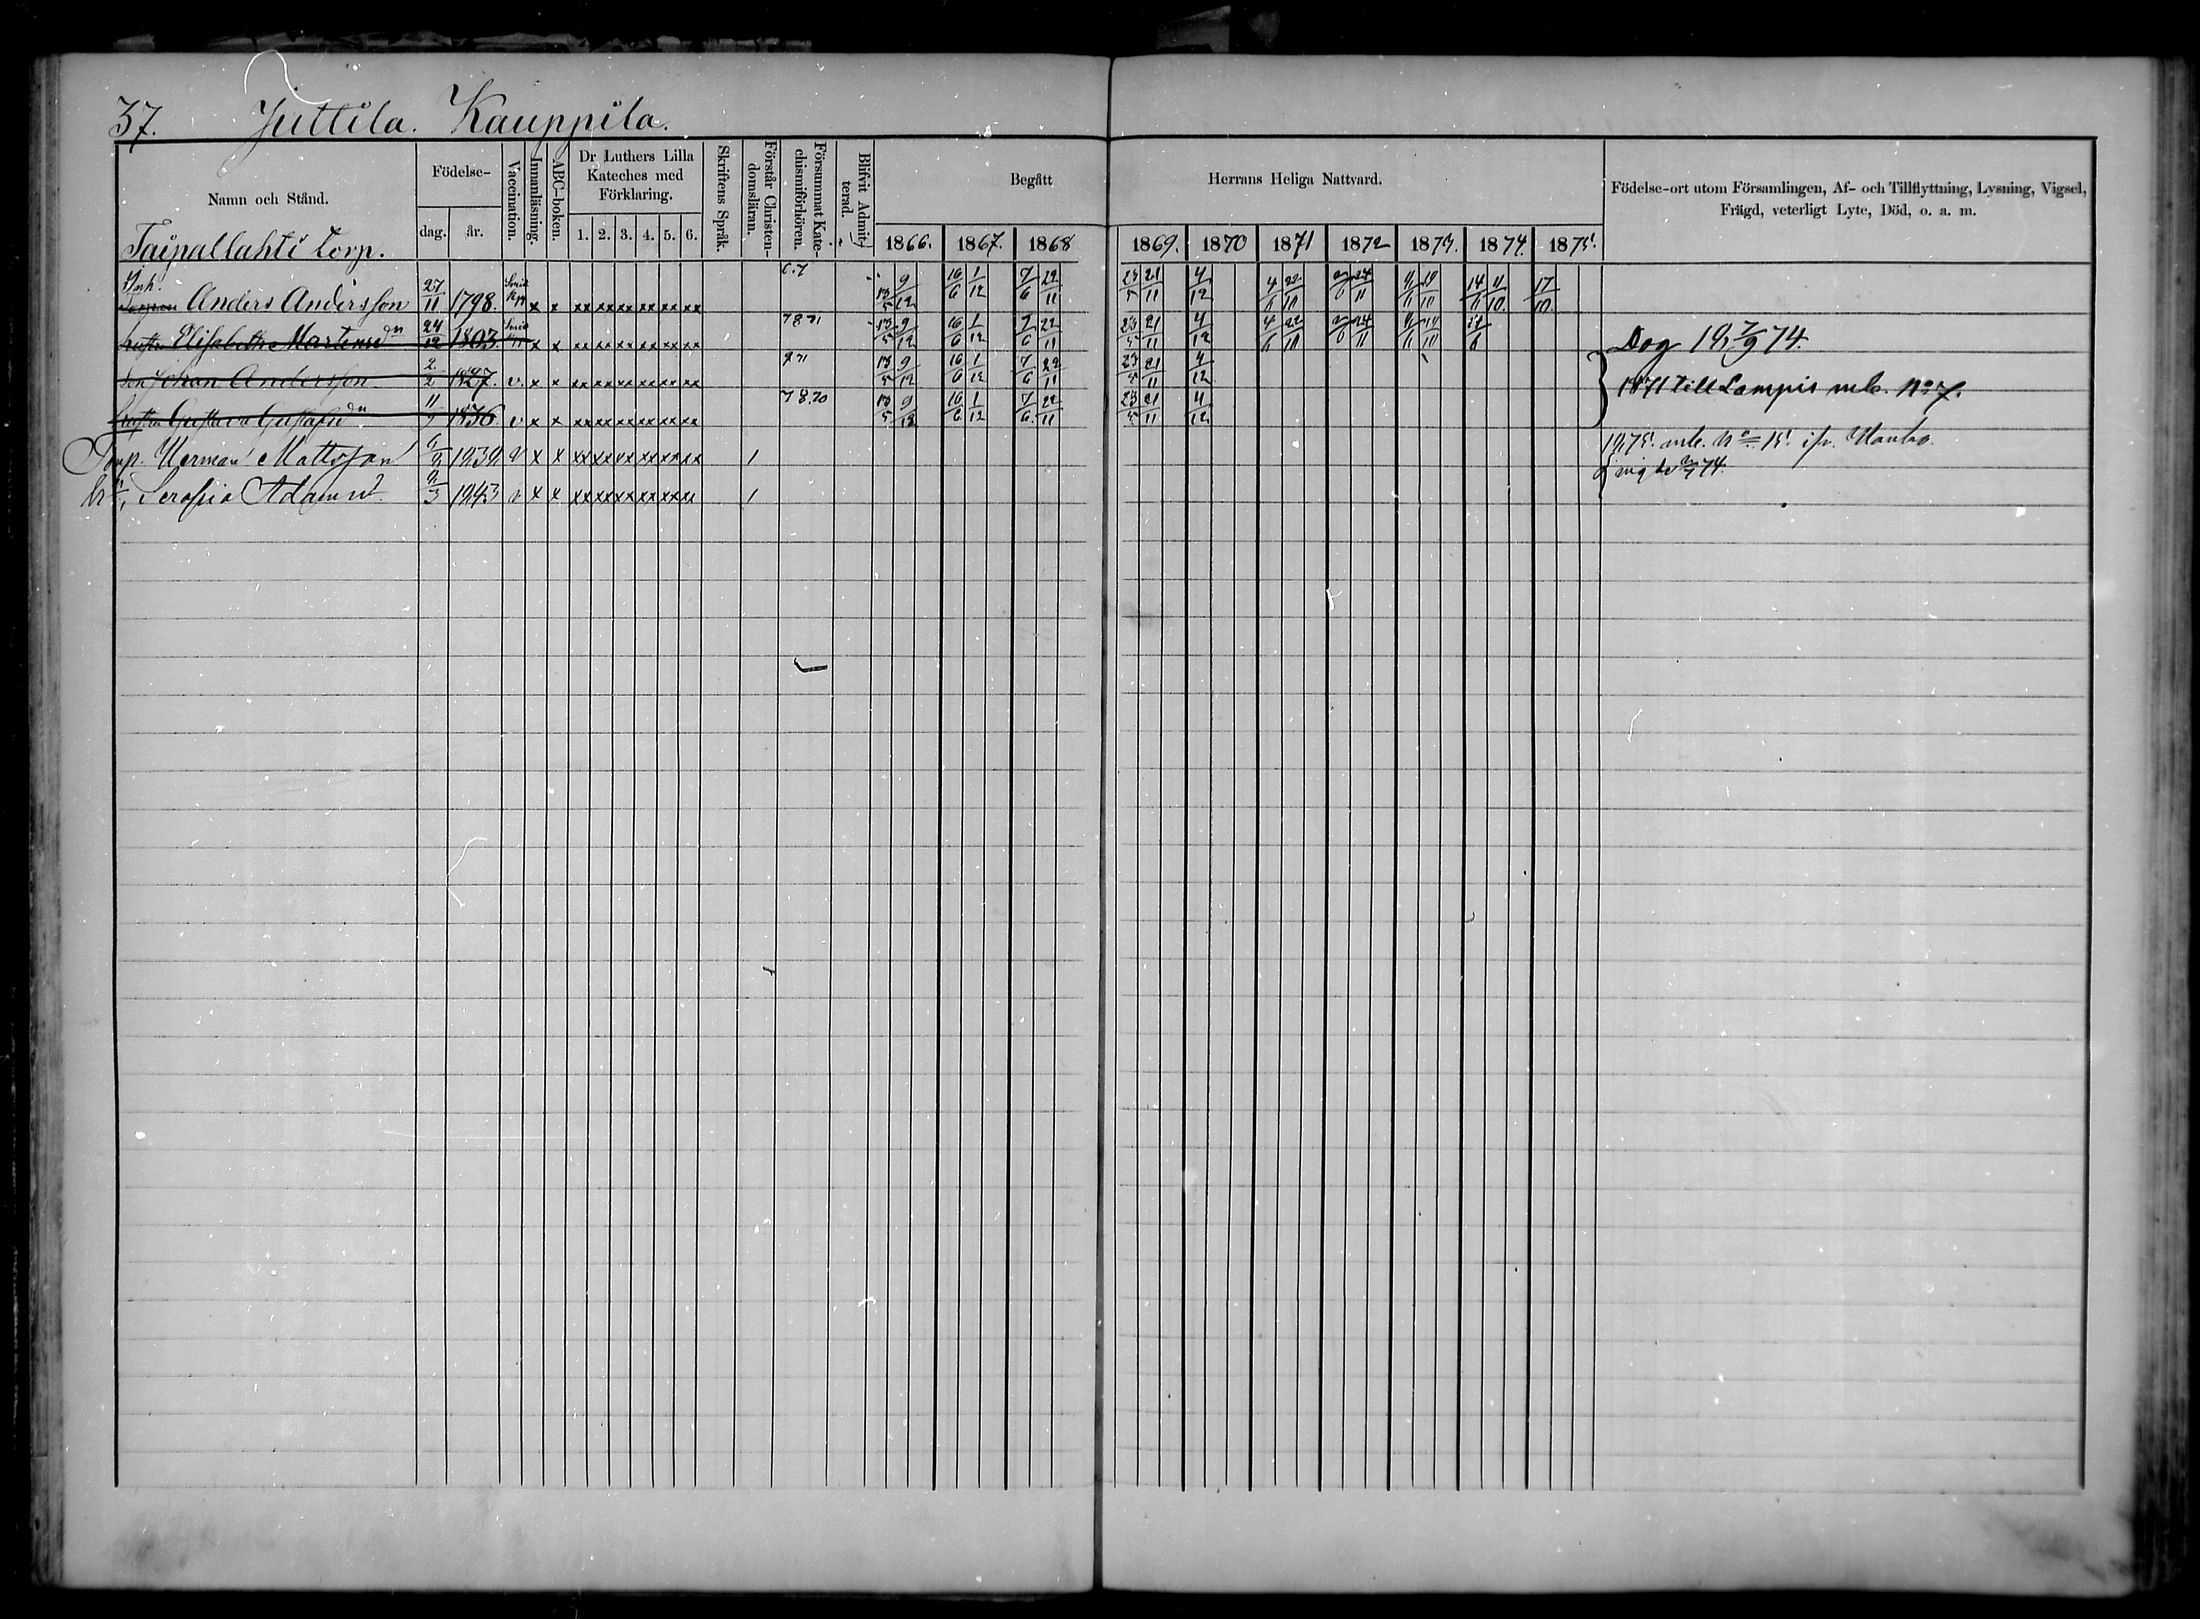 37. Juttila. Kauppila.
Namn och Stånd. Födelse- dag. år. Vaccination. Innanläsning. ABC-boken. Dr Luthers Lilla Kateches med Förklaring. 1. 2. 3. 4. 5. 6. Skriftens Språk. Förstår Christen-domsläran. Försummat Kate-chismiförhören. Blifvit Admit-terad. Begått Herrans Heliga Nattvard. Födelse-ort utom Församlingen, Af- och Tillflyttning, Lysning, Vigsel, Frägd, veterligt Lyte, Död, o. a. m.
1866. 1867. 1868 1869. 1870 1871 1872 1873. 1874. 1875.
Taipallahti torp.
Inh.
Anders Andersson 27/11 1798. x x xx xx xx xx xx xx 13/5 9/12 16/6 1/12 7/6 22/11 23/5 21/11 4/12 4/6 14/6 11/10. 17/10.
hustru Elisabetha Martensdr 24/12 1803 x x xx xx xx xx xx xx 13/5 9/12 16/6 1/12 7/6 22/11 23/5 21/11 4/12 4/6 Dog 18 7/9 74.
Son Johan Andersson 2/2 1827. v. x x xx xx xx xx xx xx 13/5 9/12 16/6 1/12 7/6 22/11 23/5 21/11 4/12
1871 till Lampis mb. No 7.
hustru Gustava Gustafsdr 11/9 1836 v x x xx xx xx xx xx xx 78.70 13/5 9/12 16/6 1/12 7/6 22/11 23/5 21/11 4/12
Torp. Herman Mattsson 1839 v x x xx xx xx xx xx xx 1 1875. mb. No 15. ifr.
hu, Serafia Adamsd. 1843 v x x xx xx xx xx xx xx 1 vigde 74.